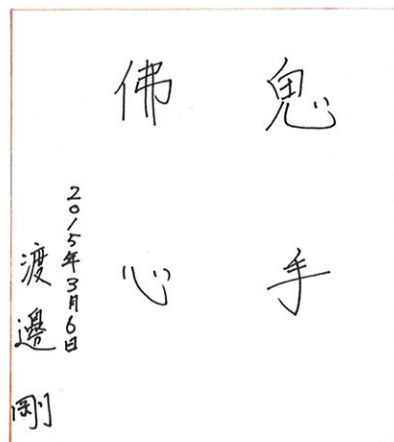 鬼手
佛心
2015年3月6日
渡邊剛